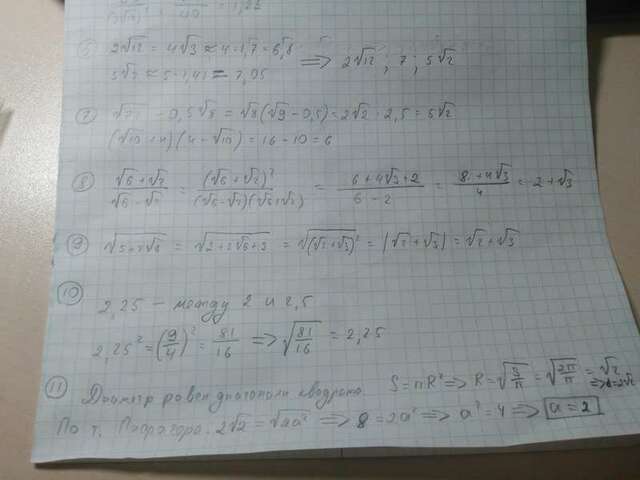 = 1,25
⑤ 2√12 = 4√3 ≈ 4·1,7 = 6,8
5√2 ≈ 5·1,41 = 7,05 => 2√12 ; 7 ; 5√2
⑦ - 0,5√8 = √8(√9 - 0,5) = 2√2 · 2,5 = 5√2
(√10 + 4)(4 - √10) = 16 - 10 = 6
⑧ (√6 + √2)/(√6 - √2) = (√6 + √2)²/((√6 - √2)(√6 + √2)) = (6 + 4√3 + 2)/(6 - 2) = (8 + 4√3)/4 = 2 + √3
⑨ √(5 + 2√6) = √(2 + 2√6 + 3) = √((√2 + √3)²) = |√2 + √3| = √2 + √3
⑩ 2,25 - между 2 и 2,5
2,25² = (9/4)² = 81/16 => √(81/16) = 2,25
⑪ Диаметр равен диагонали квадрата. S = πR² => R = √(S/π) = √(2π/π) = √2 => d = 2√2
По т. Пифагора: 2√2 = √(2a²) => 8 = 2a² => a² = 4 => a = 2